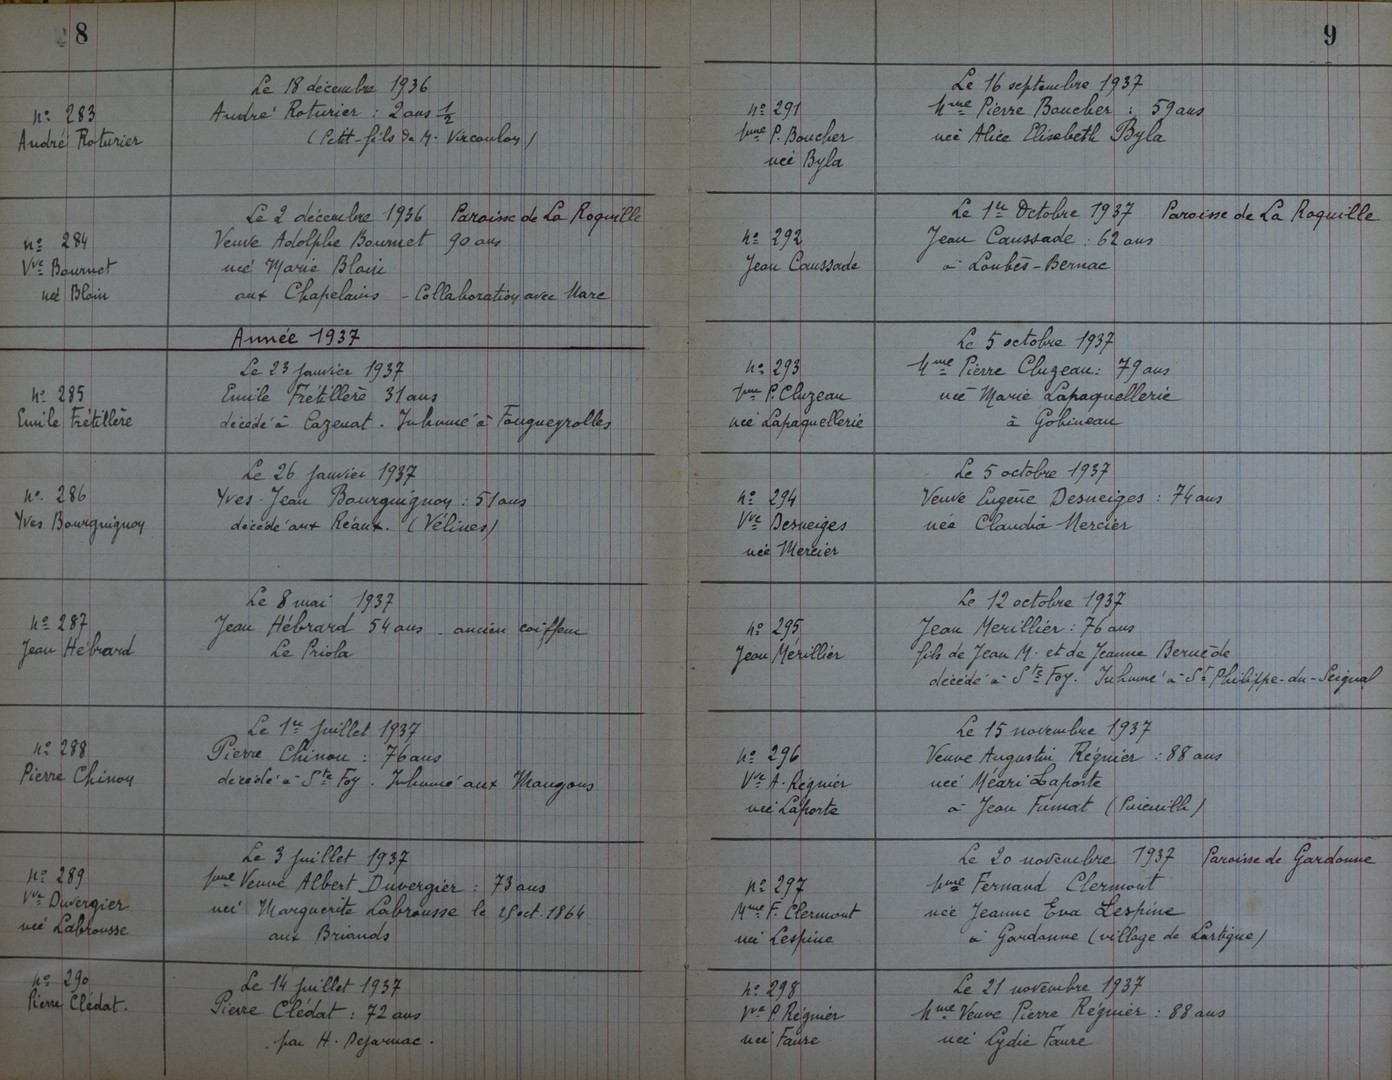 8
nº 283
André Roturier
Le 18 décembre 1936
André Roturier : 2 ans 1/2
(Petit-fils de M. Vircoulon)
nº 284
Vve Bournet
née Bloin
Le 2 décembre 1936 Paroisse de La Roquille
Veuve Adolphe Bournet 90 ans
née Marie Bloin
aux Chapelains - Collaboration avec Marc
Année 1937
nº 285
Emile Frétillère
Le 23 janvier 1937
Emile Frétillère 31 ans
décédé à Cazenat. Inhumé à Fougueyrolles
nº 286
Yves Bourguignon
Le 26 janvier 1937
Yves-Jean Bourguignon : 51 ans
décédé aux Réaux. (Vélines)
nº 287
Jean Hébrard
Le 8 mai 1937
Jean Hébrard 54 ans - ancien coiffeur
Le Priola
nº 288
Pierre Chinou
Le 1er juillet 1937
Pierre Chinou : 76 ans
décédé à Ste Foy. Inhumé aux Maugons
nº 289
Vve Duvergier
née Labrousse
Le 3 juillet 1937
Mme Veuve Albert Duvergier : 73 ans
née Marguerite Labrousse le oct. 1864
aux Briands
nº 290
Pierre Clédat.
Le 14 juillet 1937
Pierre Clédat : 72 ans
par H. Dejarnac.
9
nº 291
Mme P. Boucher
née Byla
Le 16 septembre 1937
Mme Pierre Boucher : 59 ans
née Alice Elisabeth Byla
nº 292
Jean Caussade
Le 1er Octobre 1937 Paroisse de La Roquille
Jean Caussade : 62 ans
à Loubès-Bernac
nº 293
Mme P. Cluzeau
née Lapaquellerie
Le 5 octobre 1937
Mme Pierre Cluzeau : 79 ans
née Marie Lapaquellerie
à Gobineau
nº 294
Vve Desneiges
née Mercier
Le 5 octobre 1937
Veuve Eugène Desneiges : 74 ans
née Claudia Mercier
nº 295
Jean Mérillier
Le 12 octobre 1937
Jean Merillier : 76 ans
fils de Jean M. et de Jeanne Bernède
décédé à Ste Foy. Inhumé à St Philippe-du-Seignal
nº 296
Vve A. Régnier
née Laporte
Le 15 novembre 1937
Veuve Augustin Régnier : 88 ans
née Méari Laporte
à Jean Fumat ()
nº 297
Mme F. Clermont
née Lespine
Le 20 novembre 1937 Paroisse de Gardonne
Mme Fernand Clermont
née Jeanne Eva Lespine
à Gardonne (village de Lartigue)
nº 298
Vve P. Régnier
née Faure
Le 21 novembre 1937
Mme Veuve Pierre Régnier : 88 ans
née Lydie Faure